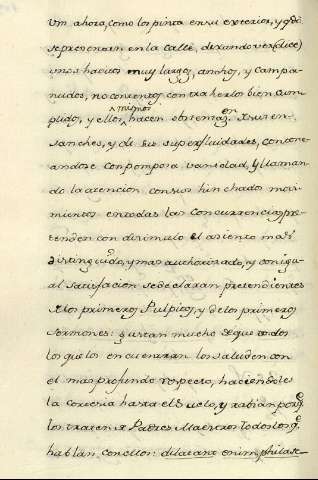 Vm ahora, como los pinta en su exterior, y qdo
se presentan en la calle, dexandover (dice)
unos havitos muy largos, anchos, y campa-
nudos, no contentos con traherlos bien cum-
plidos, y ellos mismos hacen obstentaon. de sus en-
sanches, y de sus superfluidades, contone-
andose con pomposa vanidad, y llaman-
do la atencion con sus hinchados movi-
mientos en todas las concurrencias, pre-
tenden con disimulo el asiento mas
distinguido, y mas authorizado, y con igu-
al satisfaccion se declaran pretendientes
a los primeros Pulpitos, y de los primeros
sermones: gustan mucho de que todos
los que los encuentran los saluden con
el mas profundo respecto, haciendoles
la cortesia hasta el suelo, y rabian porqe.
los traten de Padres Maestros todos los qe.
hablan con ellos: dilatant enim philact-